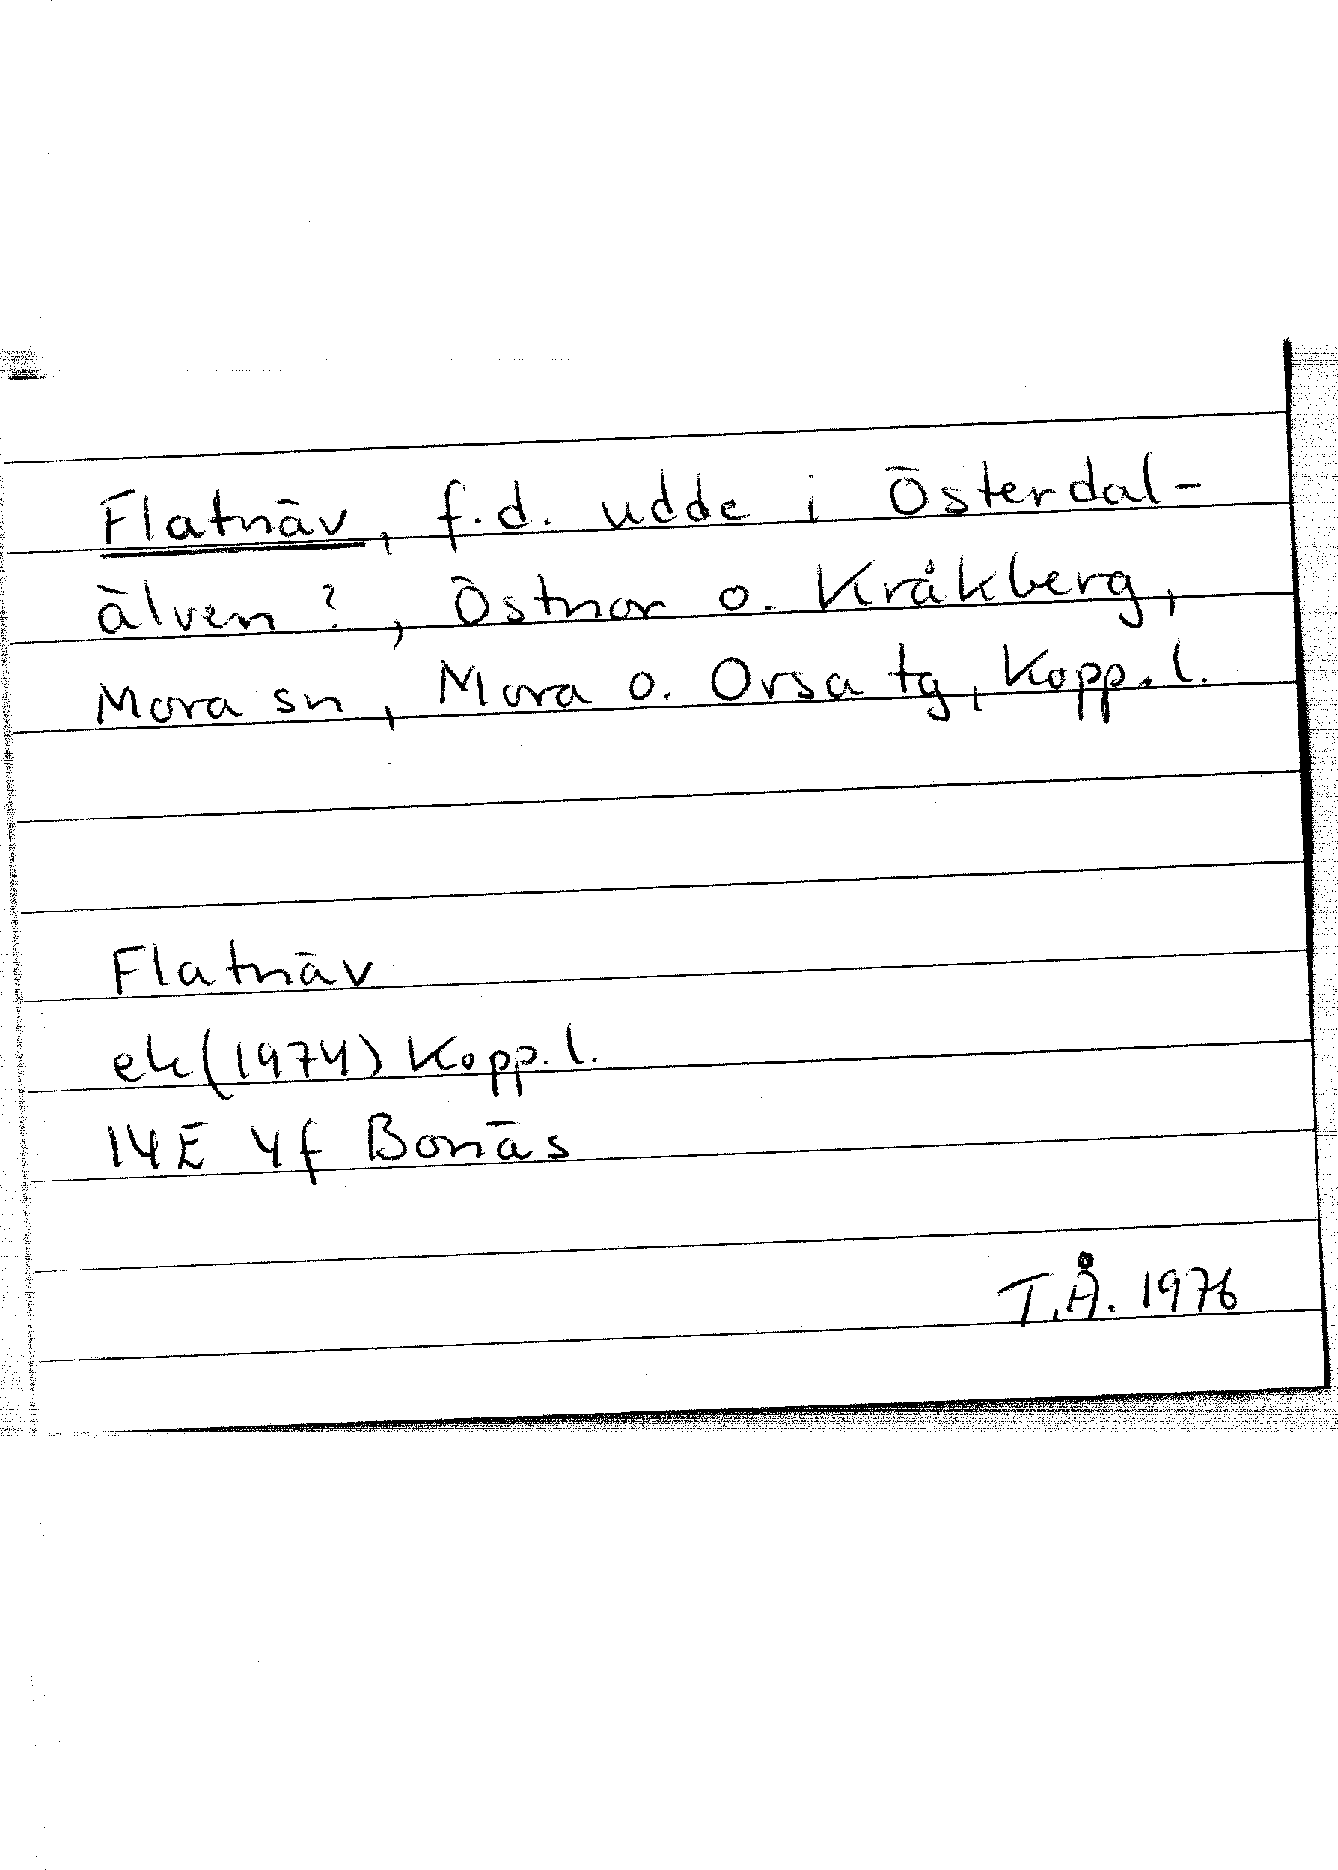 Flatnäv, f.d. udde i Österdal-
älven ?, Östnor o. Kråkberg,
Mora sn, Mora o. Orsa tg, Kopp. l.
Flatnäv
ek (1974) Kopp. l.
14E 4f Bonäs
T.Å. 1976